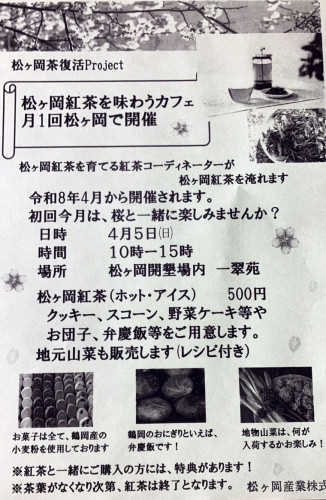 松ヶ岡茶復活Project
松ヶ岡紅茶を味わうカフェ
月1回松ヶ岡で開催
松ヶ岡紅茶を育てる紅茶コーディネーターが
松ヶ岡紅茶を淹れます
令和8年4月から開催されます。
初回今月は、桜と一緒に楽しみませんか？
日時　4月5日(日)
時間　10時ー15時
場所　松ヶ岡開墾場内　一翠苑
松ヶ岡紅茶(ホット・アイス)　500円
クッキー、スコーン、野菜ケーキ等や
お団子、弁慶飯等をご用意します。
地元山菜も販売します(レシピ付き)
お菓子は全て、鶴岡産の
小麦粉を使用しております
鶴岡のおにぎりといえば、
弁慶飯です！
地物山菜は、何が
入荷するかお楽しみ！
※紅茶と一緒にご購入の方には、特典があります！
※茶葉がなくなり次第、紅茶は終了となります。
松ヶ岡産業株式